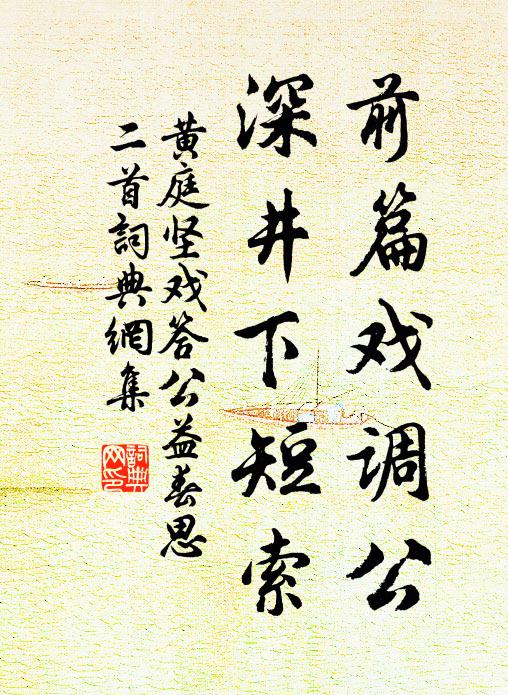 前篇戏调公
深井下短索
黄庭坚戏答公益春思
二首詞典網集
詞典
网印